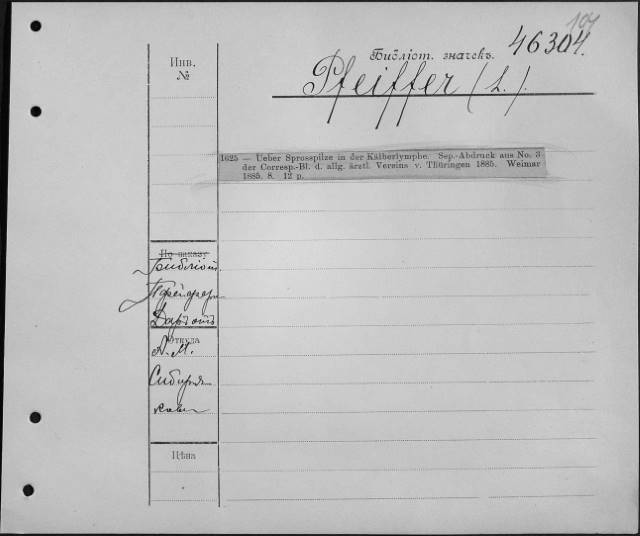 104
Библіот. значекъ. 46304.
Инв.
№
Pfeiffer (L.).
1625 — Ueber Sprosspilze in der Kälberlymphe. Sep.-Abdruck aus No. 3
der Corresp.-Bl. d. allg. ärztl. Vereins v. Thüringen 1885. Weimar
1885. 8. 12 p.
По заказу
Даръ отъ
Откуда
А. М.
Сибиря
кова
Цѣна